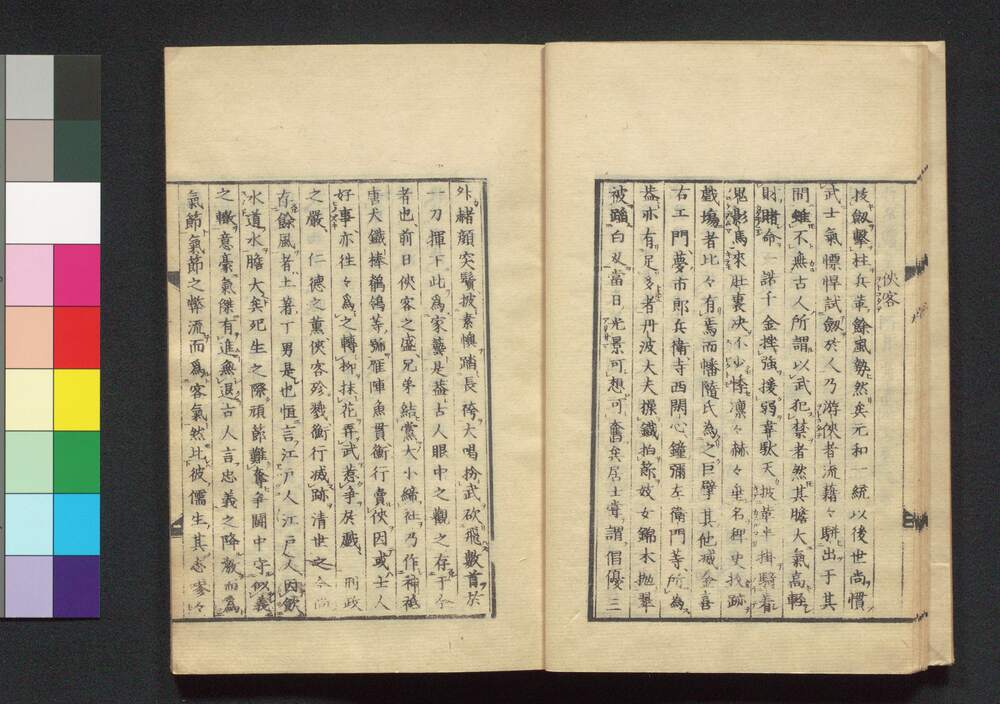 俠客
拔劔擊柱兵革餘風勢然矣元和一統以後世尚慣
武士氣慓悍試劔於人乃游俠者流藉々駢出于其
間雖不無古人所謂以武犯禁者然其膽大氣高輕
財賭命一諾千金挫強援弱韋馱天披革半掛騎着
鬼影馬來肚裏决不少悸凛々赫々垂名稗史找跡
戲塲者比々有焉而幡隨氏為之巨擘其他喜
右工門夢市郎兵衞寺西閑心鐘彌左衞門等所為
盖亦有足多者丹波大夫探鐵拍節妓女錦木抛翠
被踊白刄當日光景可想可奮矣居士嘗謂倡優三
外赭顔突鬢披素懊踏長袴大唱扮武砍飛數首於
一刀揮下此為家藝是盖古人眼中之觀之存于今
者也前日俠客之盛兄弟結黨大小締社乃作神祗
唐犬鐵棒鶺鴒等號雁陣魚貫衡行賣俠因或士人
好事亦徃々為之轉柳抹花弄武惹爭於戲 刑政
之嚴 仁德之薰俠客殄衡行滅跡清世之今尚
存餘風者土著丁男是也恒言江戶人江戶人因飲
水道水膽大矣死生之際頑節難奪爭鬪中守似義
之轍意豪氣傑有進無退古人言忠義之降激而為
氣節氣節之弊流而為客氣然比彼儒生其志寥々